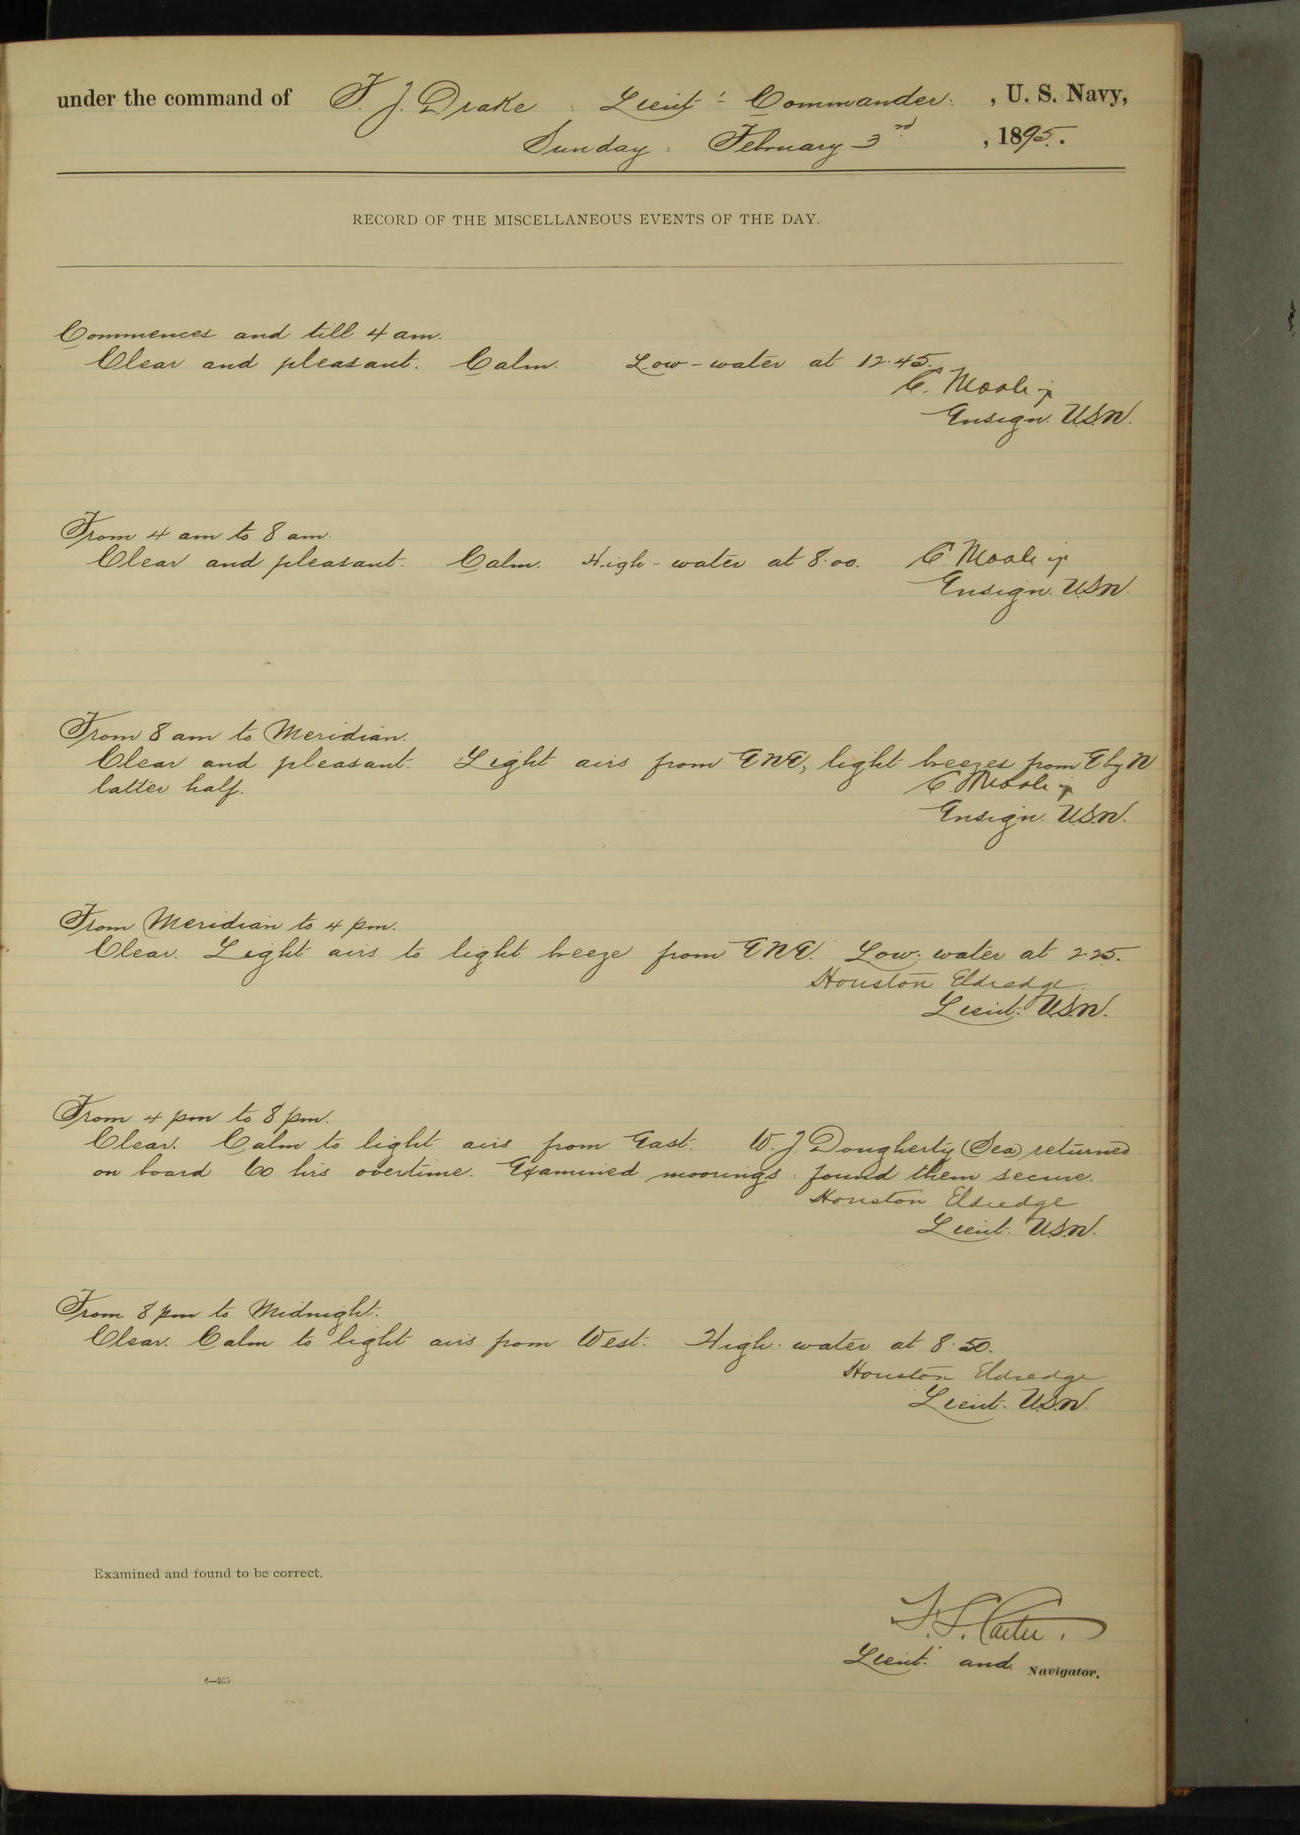 under the command of F. J. Drake. Lieut: Commander. , U. S. Navy,
Sunday. February 3rd , 1895.
RECORD OF THE MISCELLANEOUS EVENTS OF THE DAY.
Commences and till 4 am.
Clear and pleasant. Calm. Low-water at 12.45.
C. Moale jr
Ensign. U.S.N.
From 4 am to 8 am.
Clear and pleasant. Calm. High-water at 8.00. C. Moale jr
Ensign. U.S.N.
From 8 am to Meridian.
Clear and pleasant. Light airs from ENE, light breezes from E by N
latter half. C. Moale jr
Ensign. U.S.N.
From Meridian to 4 pm.
Clear. Light airs to light breeze from ENE. Low. water at 2.25.
Houston Eldredge.
Lieut. U.S.N.
From 4 pm to 8 pm.
Clear. Calm to light airs from East. W. J. Dougherty (Sea) returned
on board 60 hrs overtime. Examined moorings. found them secure.
Houston Eldredge
Lieut. U.S.N.
From 8 pm to Midnight.
Clear. Calm to light airs from West. High. water at 8.50.
Houston Eldredge
Lieut. U.S.N.
Examined and found to be correct.
F. S. Carter.
Lieut. and Navigator.